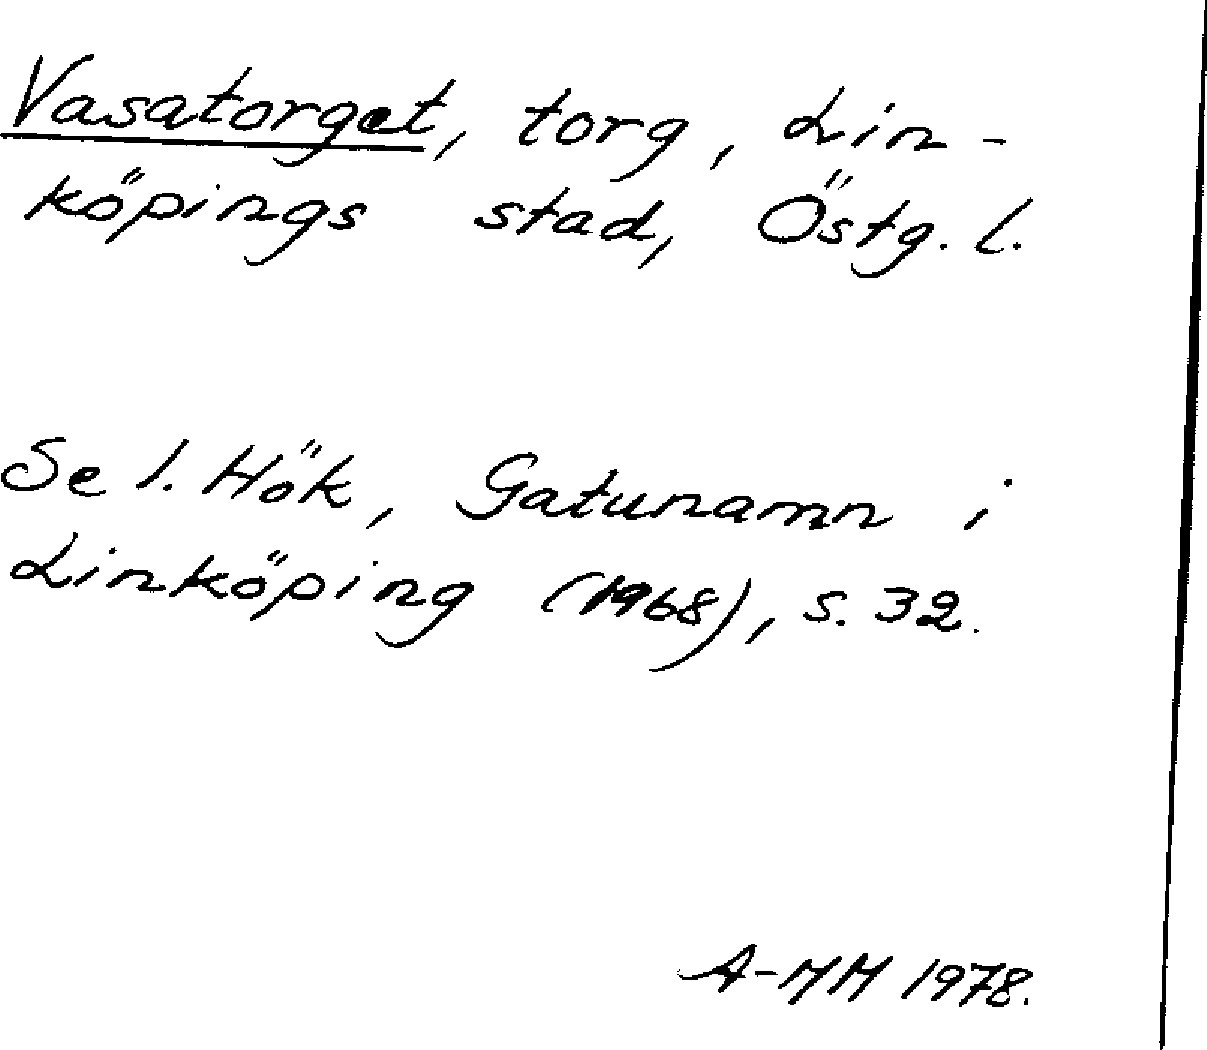 Vasatorget, torg, Lin-
köpings stad, Östg. l.
Se I. Hök, Gatunamn i
Linköping (1968), s. 32.
A-MM 1978.